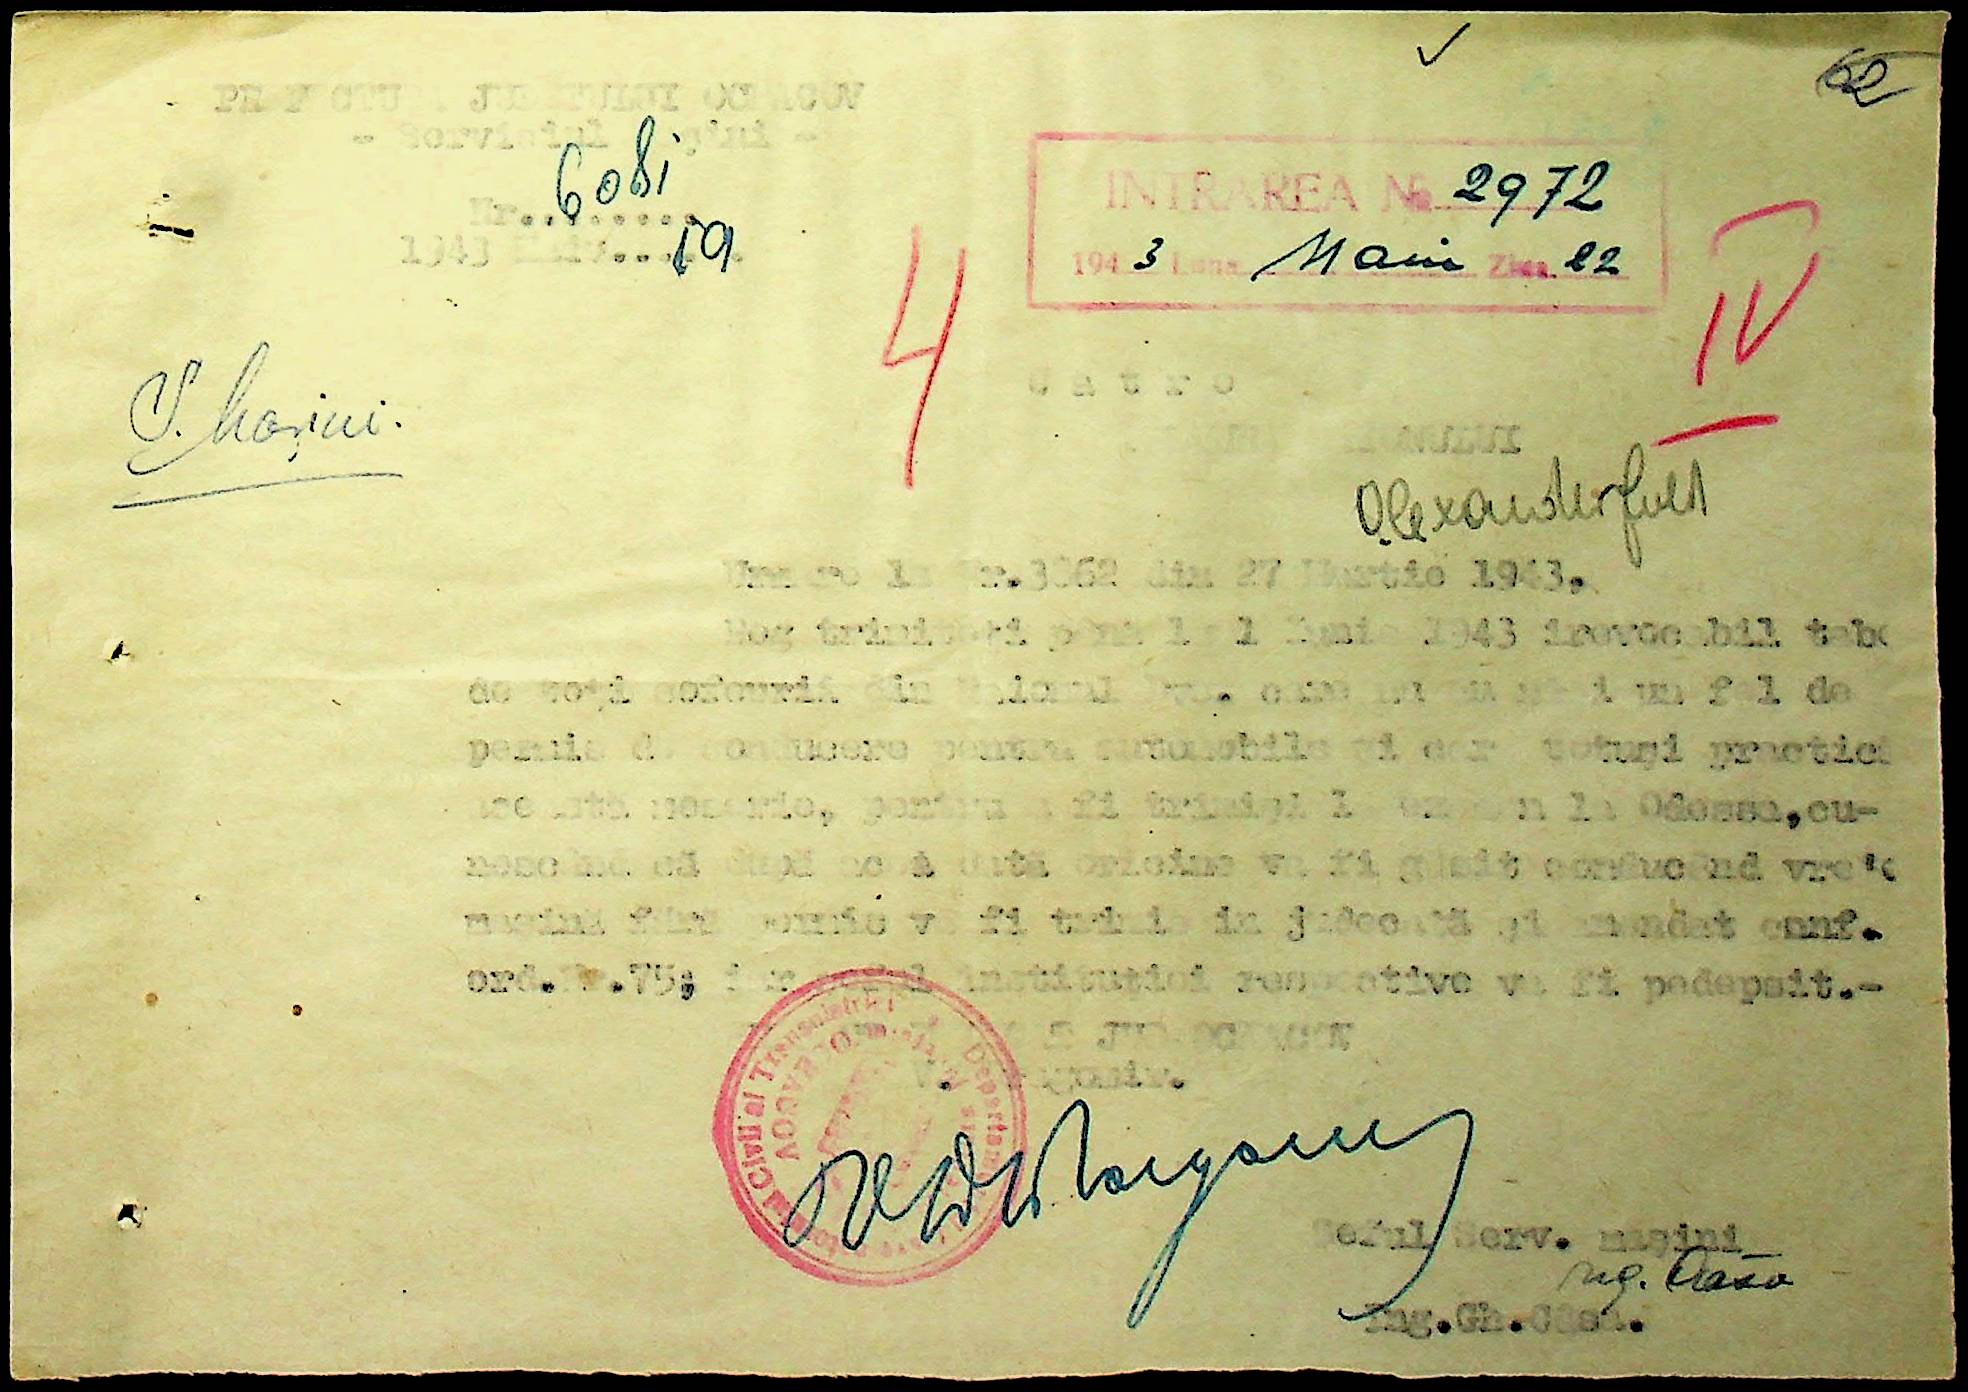 62
PREFECTURA JUDETULUI OCEACOV
- Serviciul Mașini -
Nr.........
6081
1943 Mai........
19
INTRAREA No. 2972
1943 Luna Maiu Ziua 22
4
IV
S. Mașini.
C a t r e
RAIONULUI
Alexanderfeld
Urmare la Nr.3062 din 27 Martie 1943.
Rog trimiteti până la 1 Iunie 1943 irevocabil tab
de toți soferii din Raionul Dvs. care nu au nici un fel de
permis de conducere pentru automobile și cari totuși practică
această meserie, pentru a fi trimiși la examen la Odessa, cu-
noscând că după această dată oricine va fi găsit conducând vre'o
mașină fără permis va fi trimis in judecată și amendat conf.
ord.Nr.75; iar șeful institutiei respective va fi pedepsit.-
JUD. OCEACOV
V.
Seful Serv. mașini
Ing. Casa
Ing.Gh.Casa.